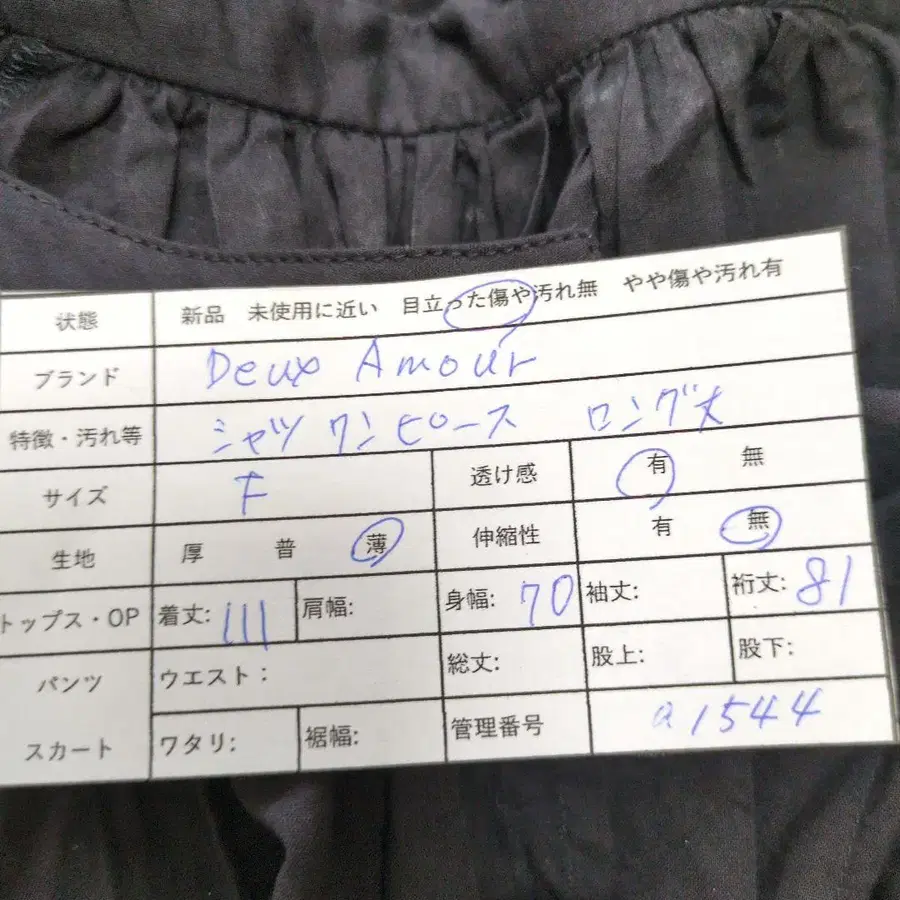 状態 新品 未使用に近い 目立った傷や汚れ無 やや傷や汚れ有
ブランド Deux Amour
特徴・汚れ等 シャツワンピース ロング丈
サイズ F 透け感 有 無
生地 厚 普 薄 伸縮性 有 無
トップス・OP 着丈: 111 肩幅: 身幅: 70 袖丈: 裄丈: 81
パンツ ウエスト: 総丈: 股上: 股下:
スカート ワタリ: 裾幅: 管理番号 a1544